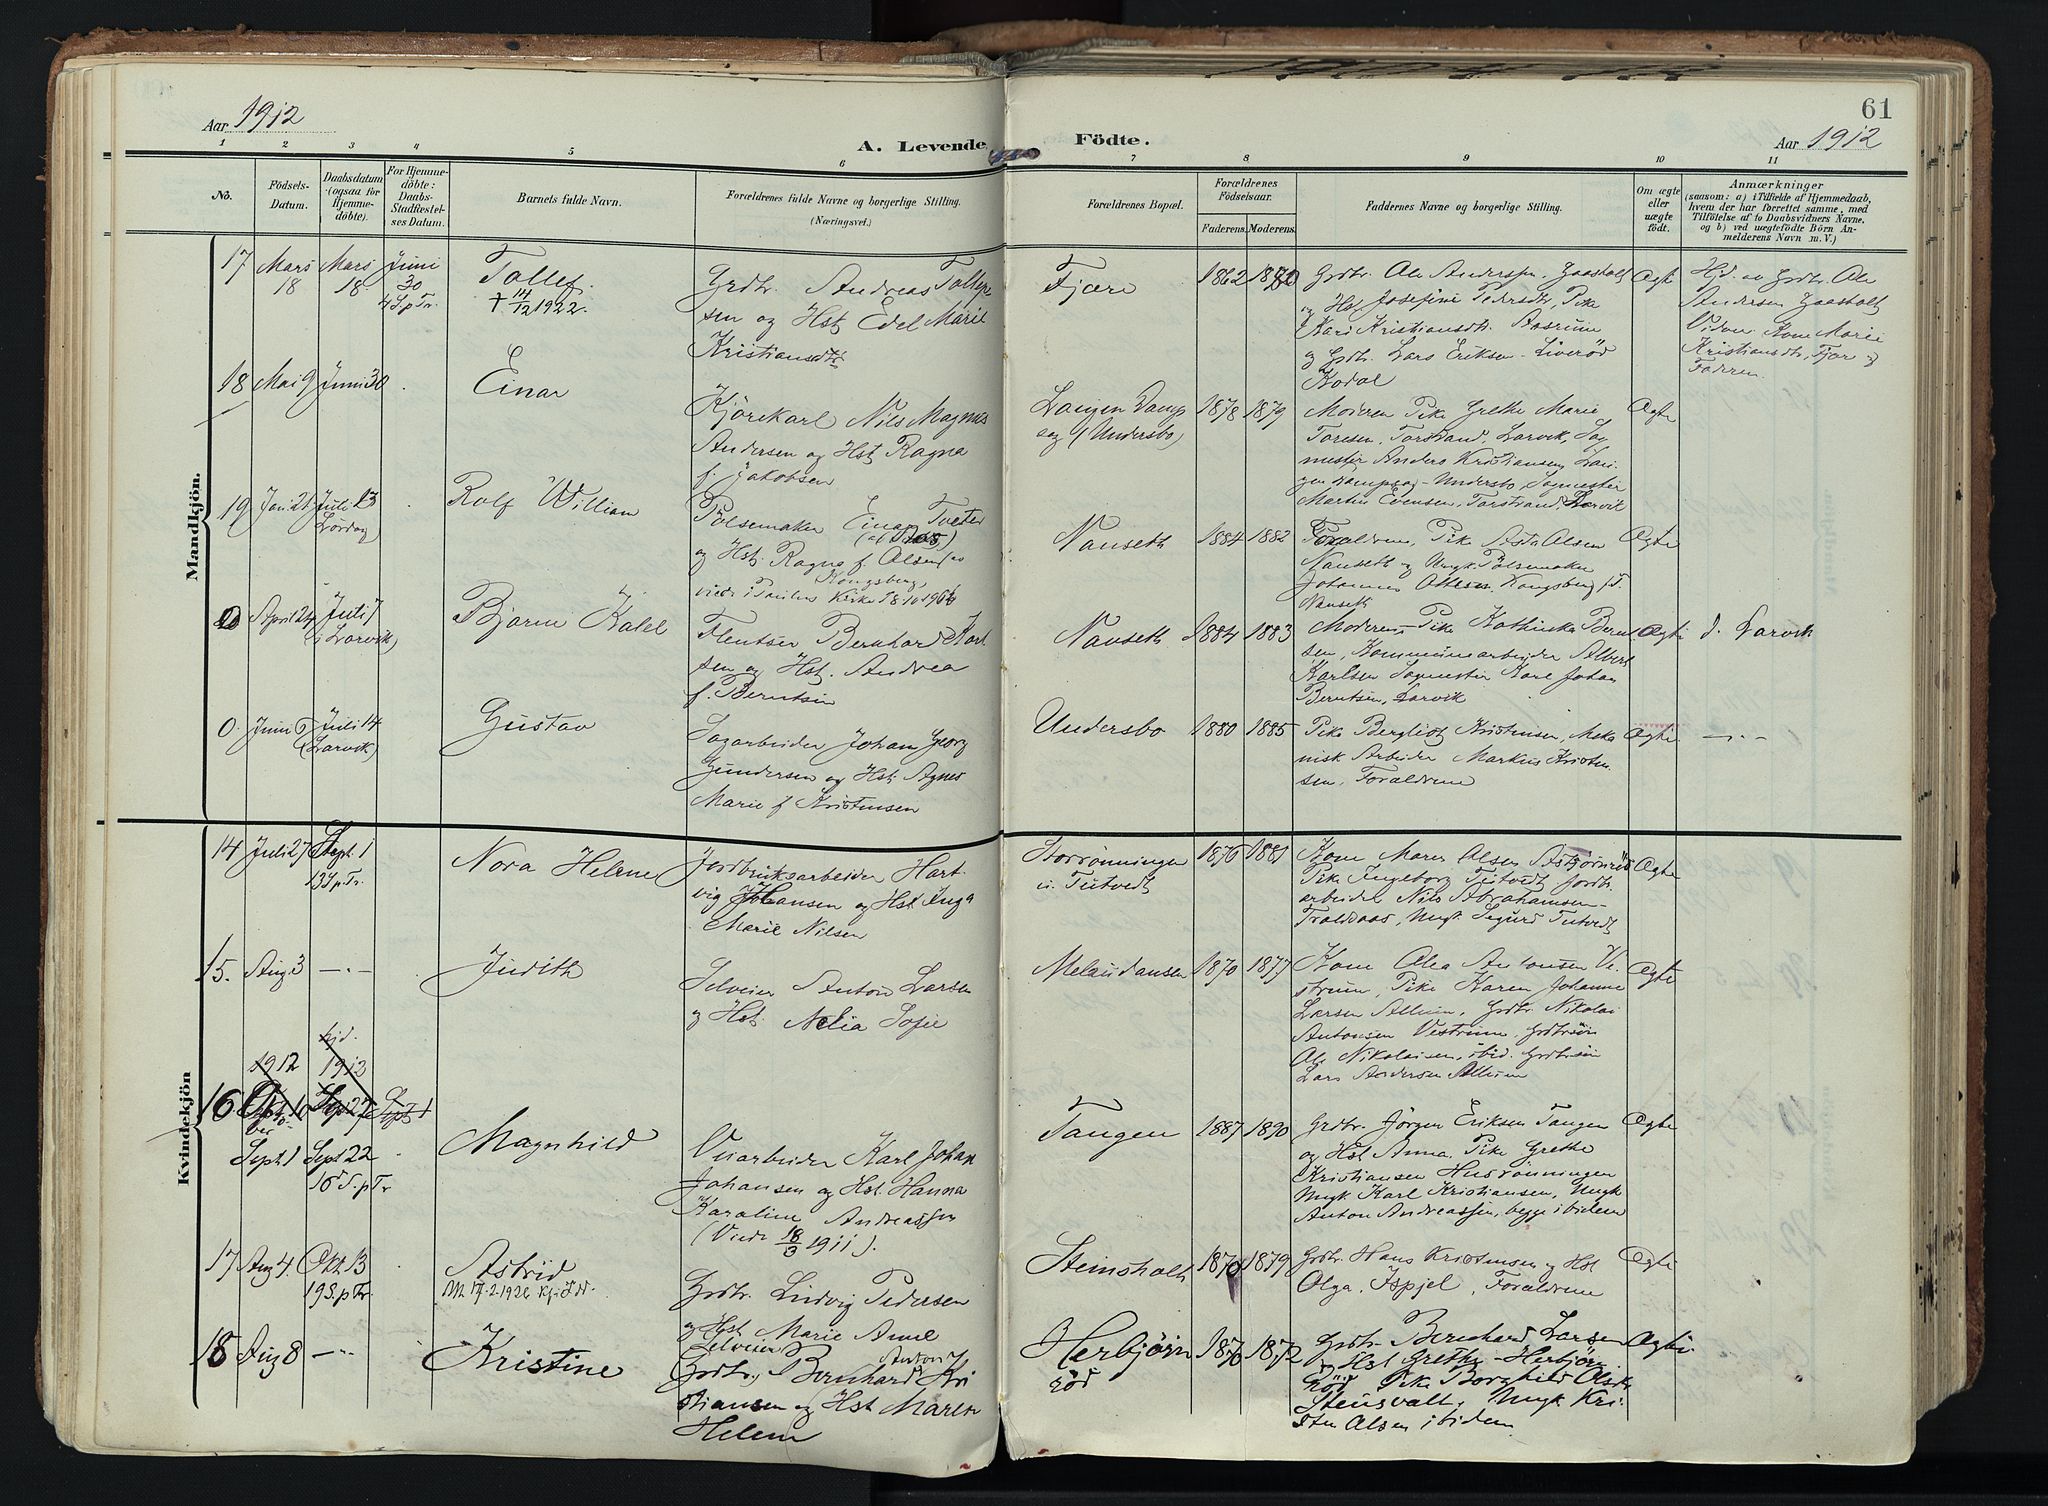 61
Aar 1912
A. Levende
Födte.
Aar 1912
1 2 3 4 5 6 7 8 9 10 11
No.
Födsels-
Datum.
Daabsdatum
(ogsaa for
Hjemme-
döbte).
For Hjemme-
döbte:
Daabs-
Stadfæstel-
ses Datum.
Barnets fulde Navn.
Forældrenes fulde Navne og borgerlige Stilling.
(Næringsvei.)
Forældrenes Bopæl.
Forældrenes
Födselsaar.
Faderens. Moderens.
Faddernes Navne og borgerlige Stilling.
Om ægte
eller
uægte
födt.
Anmærkninger
(saasom: a) i Tilfælde af Hjemmedaab,
hvem der har forrettet samme, med
Tilföielse af to Daabsvidners Navne,
og b) ved uægtefödte Börn An-
melderens Navn m. V.)
Mandkjön.
17 Mars 18 Mars 18 Juni 30
4 S. p Tr.
Tollef
† 14/12 1922.
Grdbr. Andreas Tollef
sen og Hst Edel Marie
Kristiansdtr
Fjære
1862
Grdbr. Ole Andersen, Gaasholt
og Hst Josefine Pedersdtr, Pike
Kari Kristiansdtr. Aasrum
og Grdbr. Lars Eriksen Liveröd
Kodal
Ægte
Hjd. av Grdbr. Ole
Andersen Gaasholt
Vidne: Kone Marie
Kristiansdtr, Fjære og
Faderen.
18 Mai 9 Juni 30
Einar
Kjörekarl Nils Magnus
Andersen og Hst Ragna
f. Jakobsen
Laugen Damp
sag (Undersbo)
1878 1879
Moderen Pike Grethe Marie
Toresen, Torstrand, Larvik, Sag
mester Anders Kristiansen, Lau
gen Dampsag - Undersbo, Sagmester
Martin Evensen, Torstrand, Larvik
Ægte
19 Jan. 21 Juli 13
(Lördag)
Rolf William
Pölsemaker Einar Tveter
og Hst. Ragna f. Olsen
Kongsberg
viede i Paulus Kirke
Nanseth
1884 1882
Forældrene, Pike Asta Olsen
Nanseth og Ungk. Pölsemaker
Johannes Ottesen Kongsberg
Nanseth
Ægte
April 24 Juli 7
(Larvik)
Bjarne Kolel
Flentser Bernhard Karl
sen og Hst. Andrea
f. Berntsen
Nanseth
1884 1883
Moderen, Pike Kathinka Bernt
sen, Kommunearbeider Albert
Karlsen Sagmester Karl Johan
Berntsen, Larvik
Ægte
d. Larvik
0. Juni 6 Juli 14
(Larvik)
Gustav
Sagarbeider Johan Georg
Gundersen og Hst Agnes
Marie f Kristensen
Undersbo
1880 1885
Pike Bergliot Kristensen, Meka
nisk Arbeider Markus Kristen
sen, Forældrene
Ægte
—"—
Kvindekjön
14 Juli 27 Sept. 1
13 S. p Tr.
Nora Helene
Jordbruksarbeider Hart
vig Johansen og Hst. Inga
Marie Nilsen
Storrönningen
u. Tutvedt
1876 1881
Kone Maren Olsen Asbjörnröd
Pike Ingeborg Tutvedt Jordbr.
arbeider Nils Abrahamsen
Traldaas, Ungk. Sigurd Tutvedt
Ægte
15. Aug 3 —"—
Judith
Selveier Anton Larsen
og Hst. Nelia Sofie
Melaudansen
1870 1877
Kone Olea Antonsen Ve-
strum, Pike Karen Johanne
Larsen Allum, Grdbr. Nikolai
Antonsen Vestrum, Grdbrsön
Ole Nikolaisen, ibid. Grdbrsön
Lars Andersen Allum
Ægte
1912
hjd.
1912
16 Sept. 1 Sept 22
16 S. p Tr
Magnhild
Veiarbeider Karl Johan
Johansen og Hst. Hanna
Karoline Andreassen
(Viede 18/3 1911).
Tangen
1887 1890
Grdbr. Jörgen Eriksen Tangen
og Hst Anna, Pike Grethe
Kristiansen Husrönningen
Ungk Karl Kristiansen, Ungk
Anton Andreassen, begge ibidem
Ægte
17 Aug 4. Okt. 13
19 S. p Tr
Astrid
Grdbr. Ludvig Pedersen
og Hst Marie Anne
Steinsholt
1870 1879
Grdbr. Hans Kristensen og Hst
Olga, Ispjel, Forældrene
Ægte
18 Aug 8 —"—
Kristine
Selveier
Grdbr. Bernhard Anton Kri
stiansen og Hst Maren
Helene
Herbjörn
röd
1870 1872
Grdbr. Bernhard Larsen
og Hst Grethe - Herbjörn
röd Pike Borghild Olsen
Stensvalt, Ungk Kri
sten Olsen ibidem.
Ægte